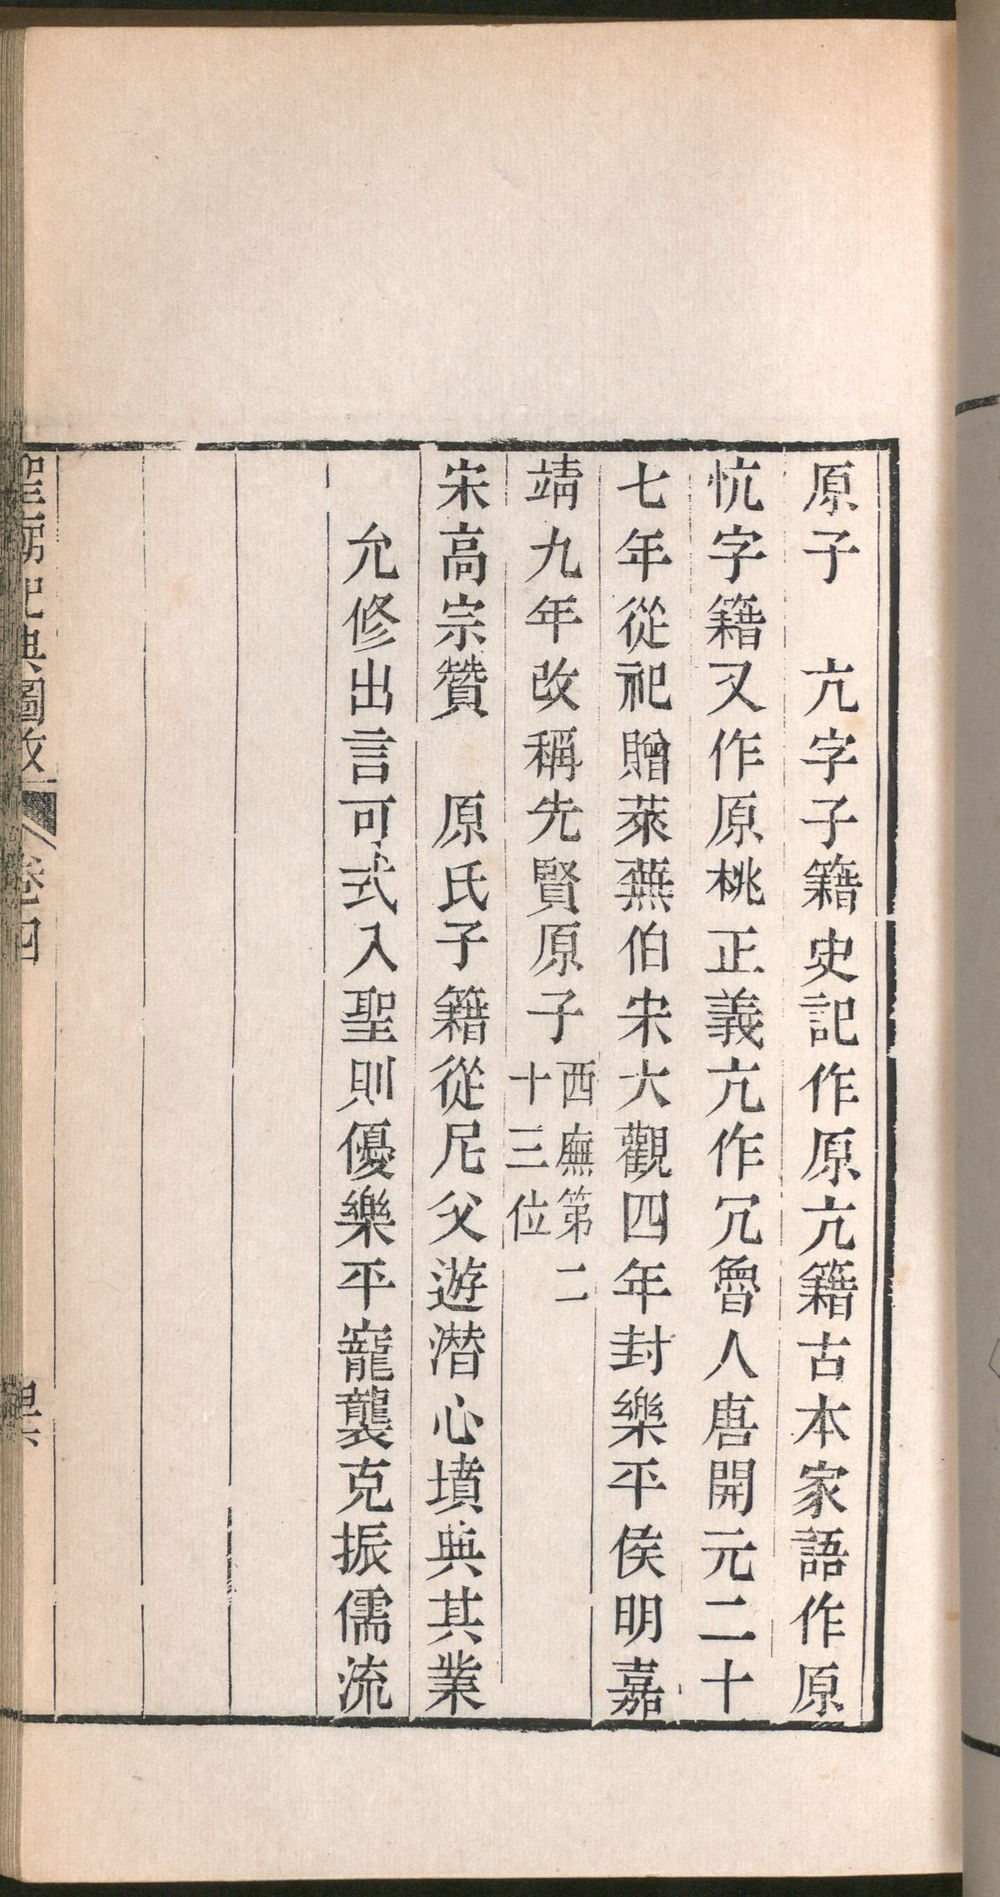 原子　亢字子籍史記作原亢籍古本家語作原
忼字籍又作原桃正義亢作冗魯人唐開元二十
七年從祀贈萊蕪伯宋大觀四年封樂平侯明嘉
靖九年改稱先賢原子西廡第二
十三位
宋高宗贊　原氏子籍從尼父遊潛心墳典其業
允修出言可式入聖則優樂平寵襲克振儒流
聖廟祀典圖攷　卷四